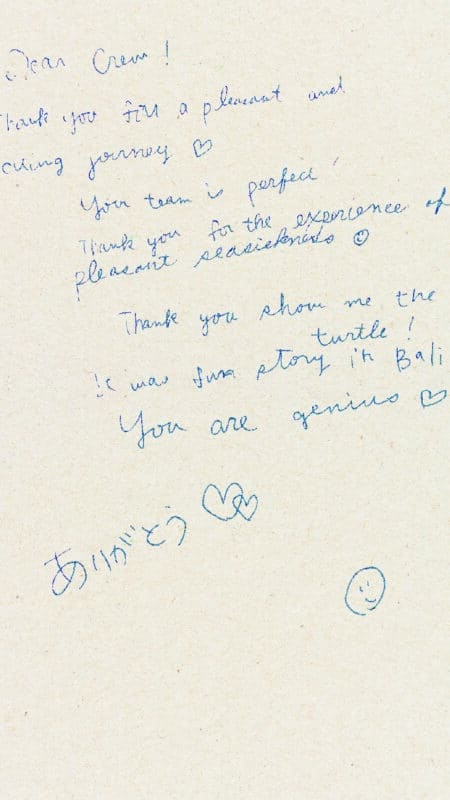 Dear Crew!
Thank you for a pleasant and
journey ♡
Your team is perfect!
Thank you for the experience of
pleasant seasickness ☺
Thank you show me the
turtle!
It was fun story in Bali
You are genius ♡
ありがとう ♡♡
☺